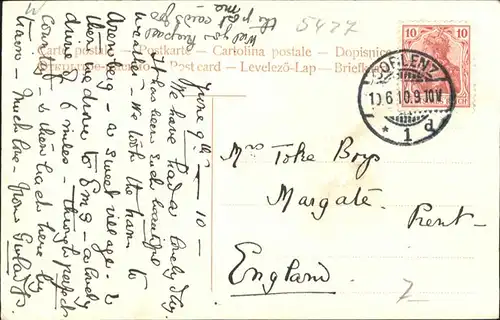 5477
Carte postale - Postkarte - Cartolina postale - Dopisnice
Postcard - Levelező-Lap - Briefk
10
COBLENZ
10.6.10.9-10V.
* 1 d
June 9th - 10 -
We have had a lovely day
It has been such beautiful
weather - We took the tram to
Arenberg - a sweet village - &
then we drove to Ems - a lovely
drive of 6 miles - through perfect
country - & then back here by
train - Much love - Yours
Mrs Toke Boys
Margate
Kent -
England